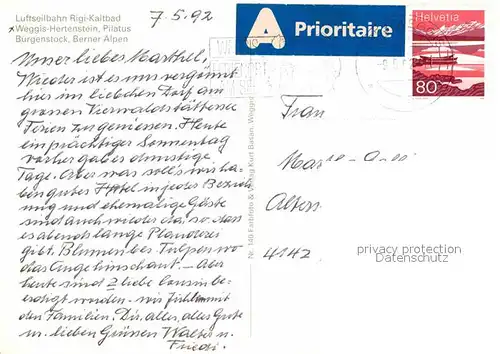 Luftseilbahn Rigi-Kaltbad
Weggis-Hertenstein, Pilatus
Bürgenstock, Berner Alpen
7.5.92
A Prioritaire
Helvetia
80
Unser liebes Marthel,
Wieder ist es uns vergönnt
hier im lieblichen Dorf am
grossen Vierwaldstättersee
Ferien zu geniessen. Heute
ein prächtiger Sonnentag
vorher gab es dunstige
Tage. Aber was soll's wir ha-
ben gutes Hotel in jeder Bezieh
ung und ehemalige Gäste
sind auch wieder da, so dass
es abends lange Plauderei
gibt. Blumen bes. Tulpen wo
das Auge hinschaut. – Aber
heute sind 2 liebe Cousin be-
erdigt worden - wir fühlen mit
den Familien. Dir, alles, alles Gute
u. lieben Grüssen Walter u.
Friedi.
Nr. 140 Farbfoto & Verlag Kurt Baxan, Weggis
Frau
4142
privacy protection
Datenschutz